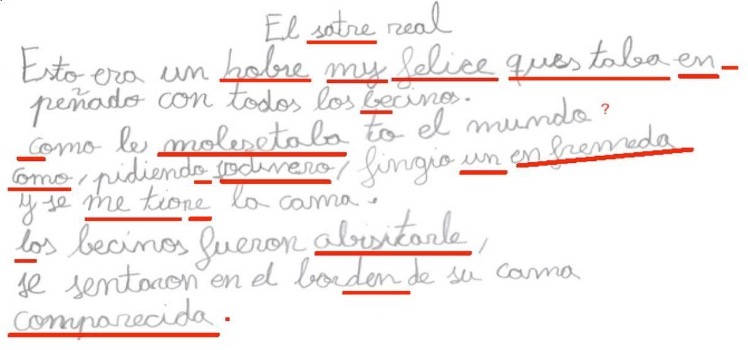 El satre real
Esto era un hobre my felice ques taba en-
peñado con todos los becinos.
como le molesetaba to el mundo ?
como, pidiendo sodinero, fingio un en fremeda
y se me tione la cama.
los becinos fueron abisitarle,
se sentaron en el borden de su cama
comparecida.